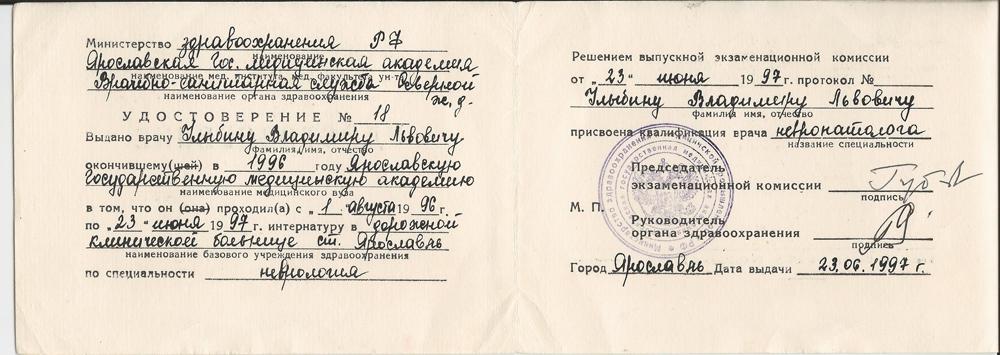 Министерство здравоохранения РФ
наименование
Ярославская гос. медицинская академия
наименование мед. института, мед. факультета ун-та
Врачебно-санитарная служба Северной ж.д.
наименование органа здравоохранения
УДОСТОВЕРЕНИЕ № 18
Выдано врачу Глыбину Владимиру Львовичу
фамилия, имя, отчество
окончившему (шей) в 1996 году Ярославскую
государственную медицинскую академию
наименование медицинского вуза
в том, что он (она) проходил(а) с „1 августа 1996 г.
по „23" июня 1997 г. интернатуру в дорожной
клинической больнице ст. Ярославль
наименование базового учреждения здравоохранения
по специальности неврология
Решением выпускной экзаменационной комиссии
от „23" июня 1997 г. протокол №
Глыбину Владимиру Львовичу
фамилия имя, отчество
присвоена квалификация врача невропатолога
название специальности
Председатель
экзаменационной комиссии
подпись
М. П.
Руководитель
органа здравоохранения
подпись
Город Ярославль Дата выдачи 23.06.1997 г.